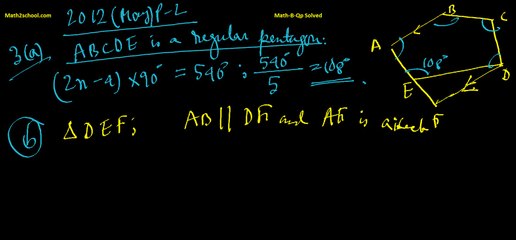 Math2school.com
Math-B-Qp Solved
2012 (May) P-2
3(a) ABCDE is a regular pentagon:
(2n-4) × 90° = 540° ; 540°/5 = 108°
A B C D E F 108°
(b) ΔDEF; AB || DF and AF is a